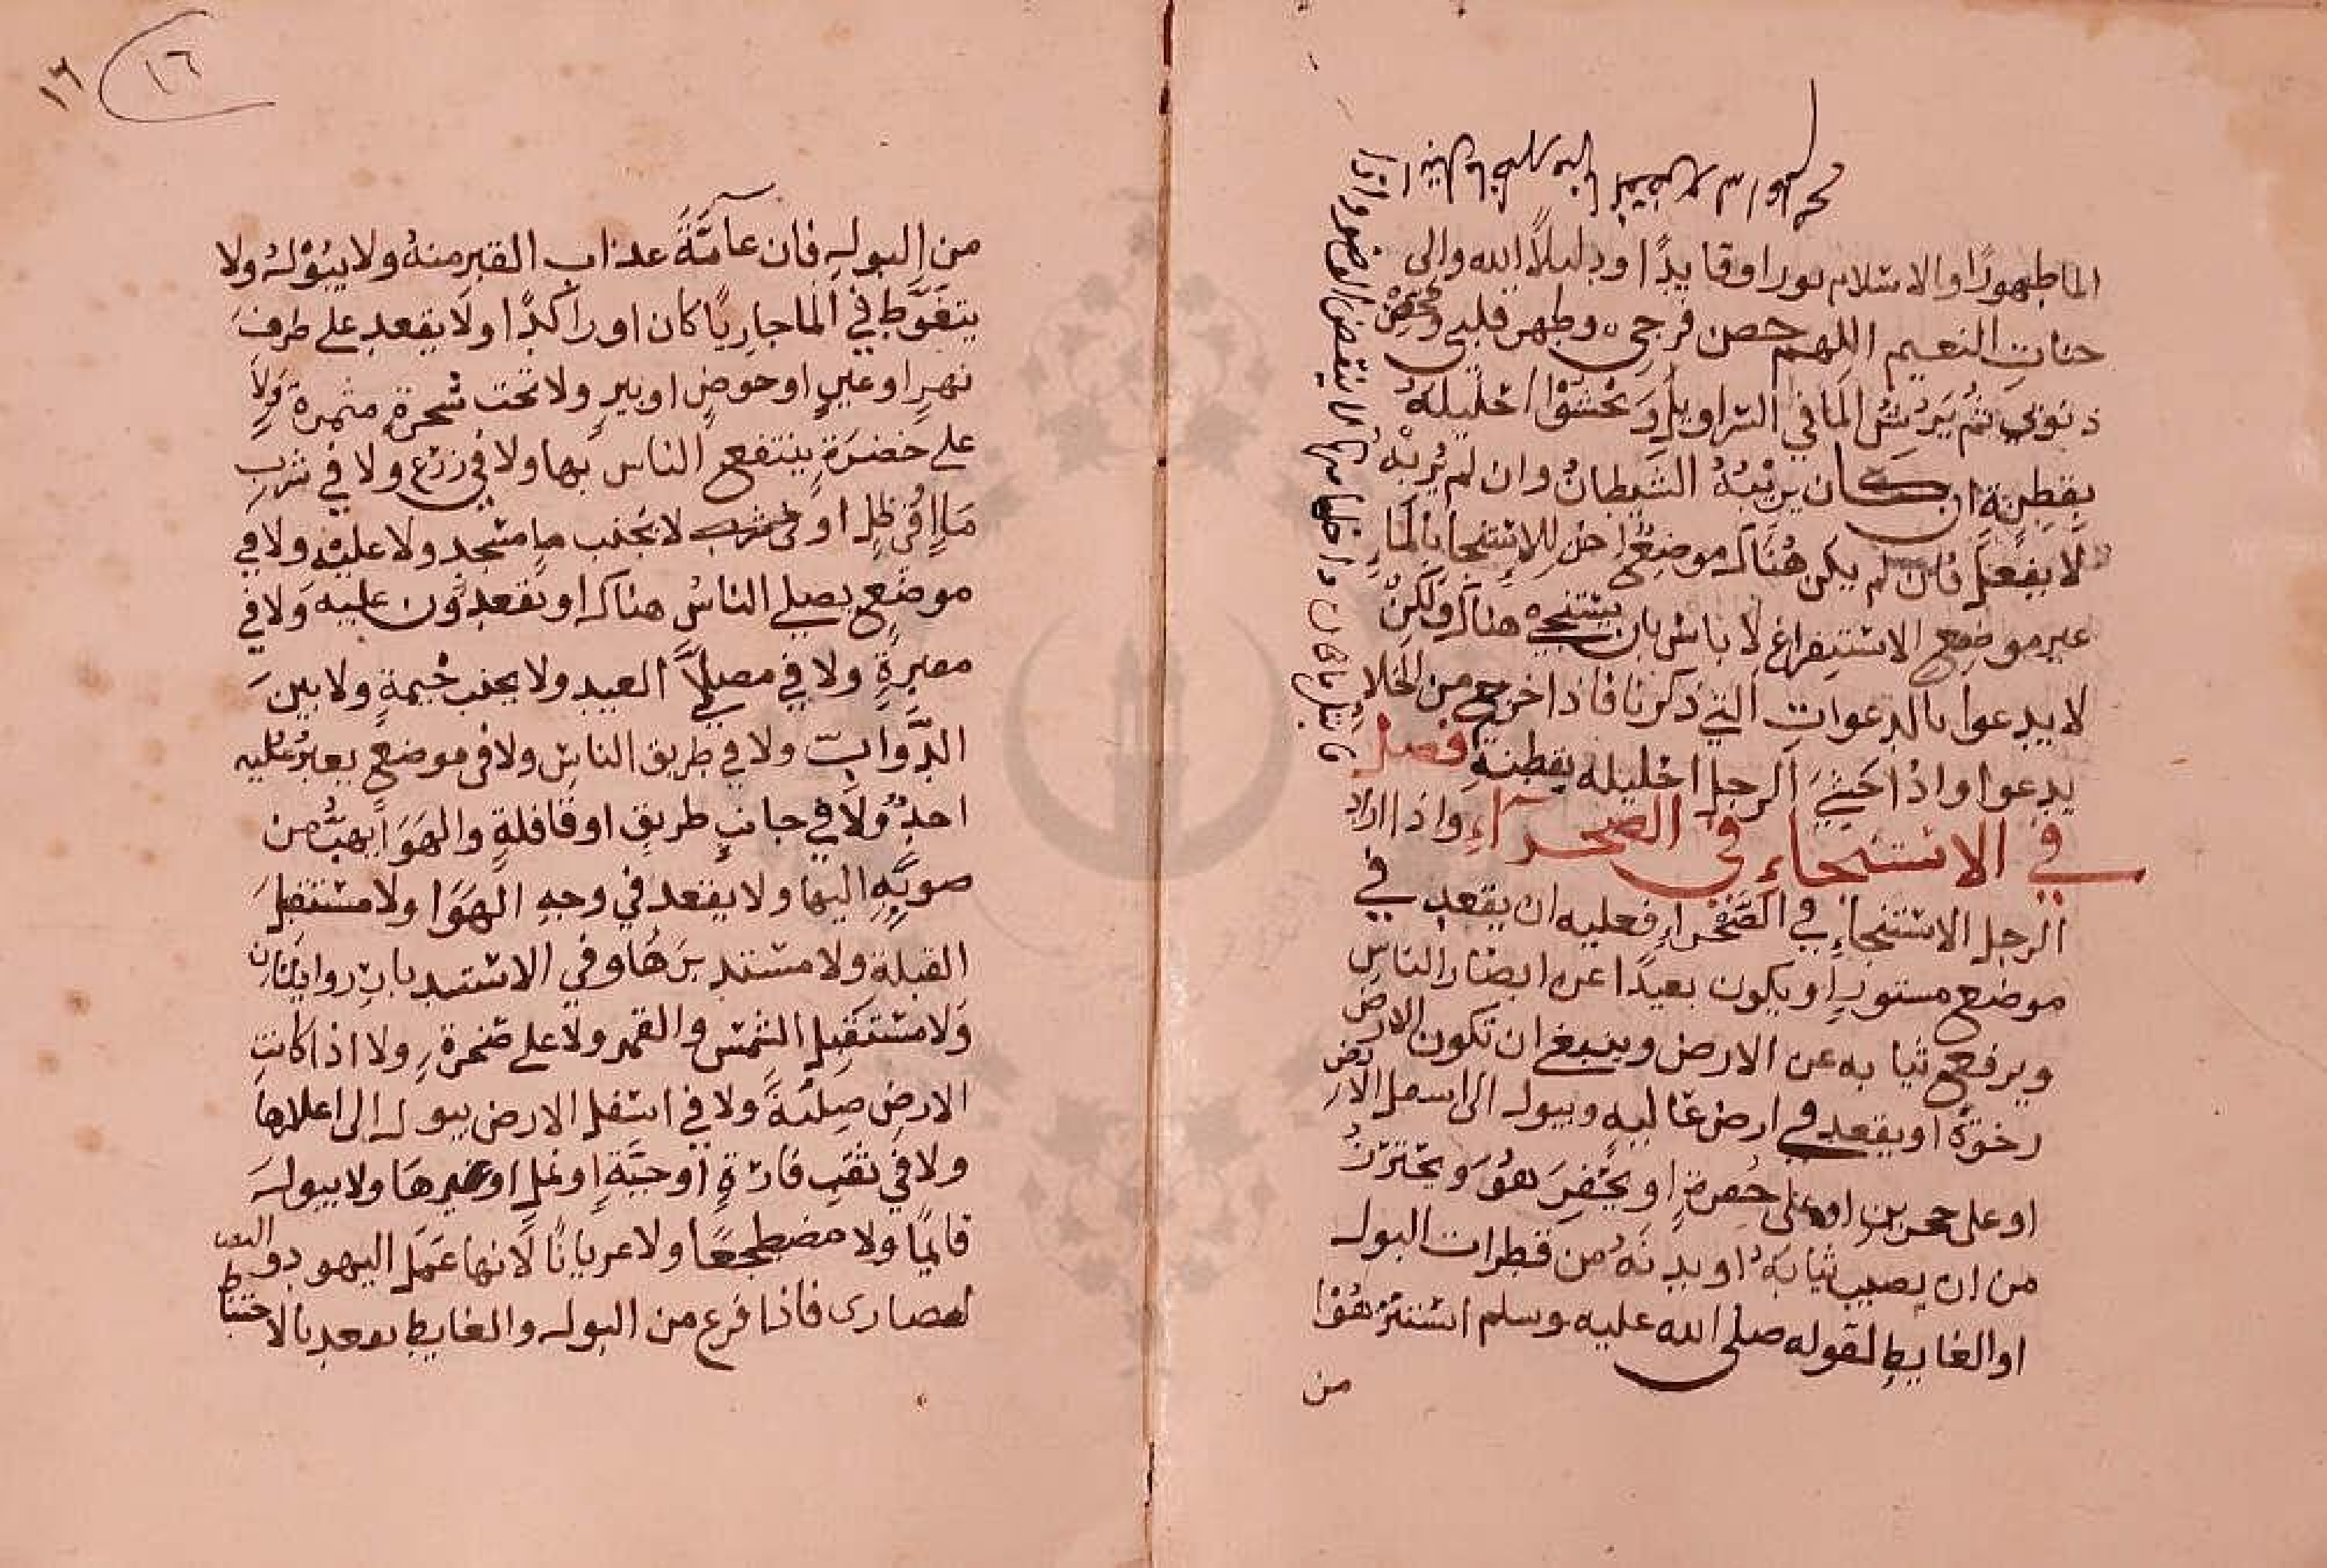 الما طهورًا والاسلام نورا وقايدًا ودليلاً الى الله والى
جنات النعيم اللهم حصن فرجى وطهر قلبى ومحص
ذنوبى ثم يرش الما فى السراويل ويحشوا احليله
بقطنة ان كان يريبه الشيطان وان لم يربه
لا يفعل فان لم يكن هناك موضع اخر للاستنجا بالما
غير موضع الاستفراغ لا باس بان يستنجى هناك ولكن
لا يدعوا بالدعوات التي ذكرنا فاذا خرج من الخلا
يدعوا واذا حشى الرجل احليله بقطنة فصل
في الاستنجاء في الصحراء واذا اراد
الرجل الاستنجاء في الصحراء فعليه ان يقعد في
موضع مستورا ويكون بعيدًا عن ابصار الناس
ويرفع ثيابه عن الارض وينبغي ان تكون الارض
رخوة او يقعد في ارض عاليه ويبول الى اسفل الارض
او على حجرين او على حفرة او يحفر هو ويحترز
من ان يصيب ثيابه او بدنه من قطرات البول
او الغايط لقوله صلى الله عليه وسلم استنزهوا
من
١٦
١٦
من البول فان عامة عذاب القبر منه ولا يبول ولا
يتغوط في الما جاريًا كان او راكدًا ولا يقعد على طرف
نهر او عين او حوض او بير ولا تحت شجرة مثمرة ولا
على خضرة ينتفع الناس بها ولا في زرع ولا في شرب
ما او في ظل او لا بجنب مسجد ولا عليه ولا في
موضع يصلي الناس هناك او يقعدون عليه ولا في
مقبرة ولا في مصلى العيد ولا بجنب خيمة ولا بين
الدواب ولا في طريق الناس ولا فى موضع يعبر عليه
احد ولا في جانب طريق او قافلة والهوا يهب من
صوبه اليها ولا يقعد في وجه الهوا ولا مستقبل
القبلة ولا مستدبرها وفي الاستدبار روايتان
ولا مستقبل الشمس والقمر ولا على صخرة ولا اذا كانت
الارض صلبة ولا في اسفل الارض يبول الى اعلاها
ولا في ثقب فارة او حية او نمل او غيرها ولا يبول
قايمًا ولا مضطجعًا ولا عريانًا لانها عمل اليهود و
لنصارى فاذا فرغ من البول والغايط يقعد بالاحتياط